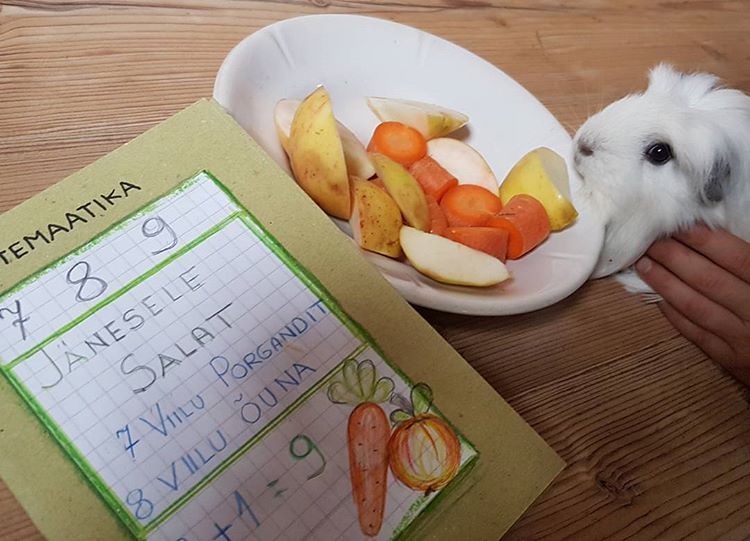 TEMAATIKA
7 8 9
JÄNESELE
SALAT
7 VIILU PORGANDIT
8 VIILU ÕUNA
+1=9